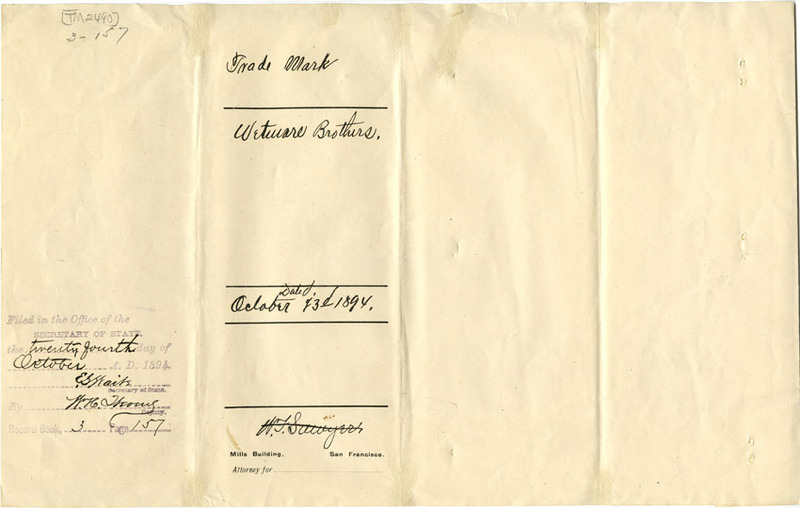 [TM2490]
3-157
Trade Mark
Wetmore Brothers.
Dated.
October 23d 1894.
Filed in the Office of the
SECRETARY OF STATE,
the twenty fourth day of
October A. D. 1894.
E.G. Waite
Secretary of State.
By W.H.
Deputy.
Record Book, 3 Page 157
W.J. Sawyers
Mills Building, San Francisco.
Attorney for